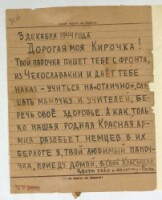 3 декабря 1944 года
Дорогая моя Кирочка!
Твой папочка пишет тебе с фронта,
из Чехословакии и даёт тебе
наказ - учиться на "отлично", слу-
шать мамулку и учителей, бе-
речь своё здоровье. А как толь-
ко наша родная Красная Ар-
мия разобьёт немцев в их
берлоге я, твой любимый папо-
чка, приеду домой, в свой Краснода-